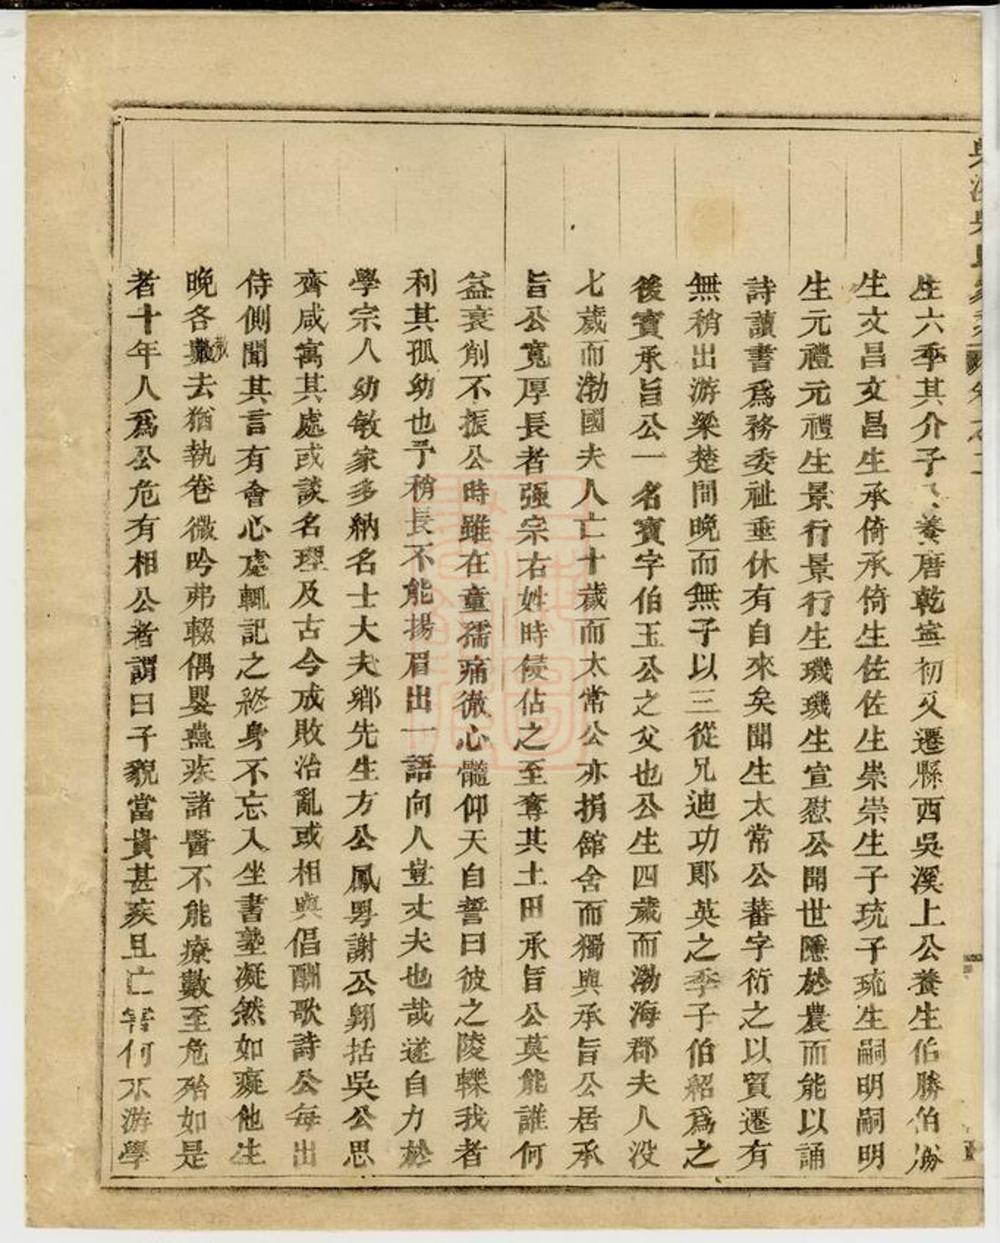 生六季其介子養唐乾寧初又遷縣西吳溪上公養生伯勝伯勝
生文昌文昌生承倚承倚生佐佐生崇崇生子琉子琉生嗣明嗣明
生元禮元禮生景行景行生璣璣生宣慰公開世隱於農而能以誦
詩讀書爲務委祉垂休有自來矣聞生太常公蕃字衍之以貿遷有
無稍出游梁楚間晩而無子以三從兄迪功郎英之季子伯紹爲之
後實承旨公一名寶字伯玉公之父也公生四歲而渤海郡夫人没
七歲而渤國夫人亡十歲而太常公亦捐館舍而獨與承旨公居承
旨公寬厚長者强宗右姓時侵佔之至奪其土田承旨公莫能誰何
益衰削不振公時雖在童孺痛徹心髓仰天自誓曰彼之陵轢我者
利其孤幼也予稍長不能揚眉出一語向人豈丈夫也哉遂自力於
學宗人幼敏家多納名士大夫鄉先生方公鳳粤謝公翱括吳公思
齊咸寓其處或談名理及古今成敗治亂或相與倡酬歌詩公每出
侍側聞其言有會心處輒記之終身不忘入坐書塾凝然如癡他生
晩各散去猶執卷微吟弗輟偶嬰蠱疾諸醫不能療數至危殆如是
者十年人爲公危有相公者謂曰子貌當貴甚疾且亡害何不游學